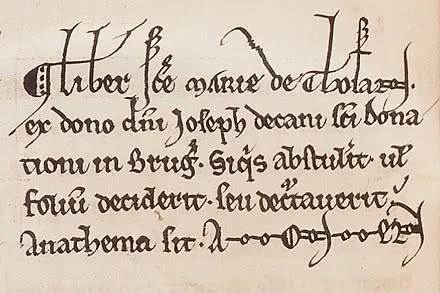 Liber sce marie de Thosan.
ex dono dni Joseph decani sci Dona
tiani in Brug. Siqis abstulit. ul
foliu deciderit. seu dectauerit
Anathema sit.